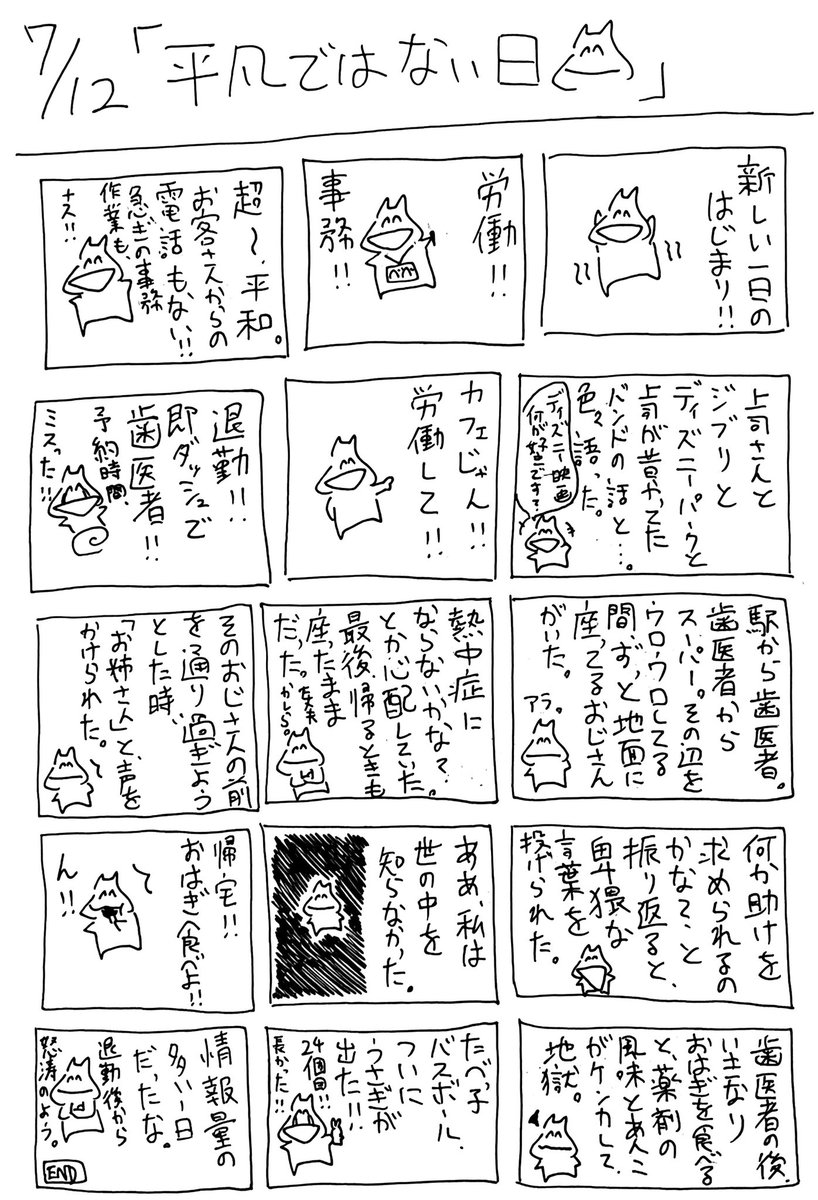 7/12「平凡ではない日」
新しい一日の
はじまり!!
労働!!
事務!!
超〜、平和。
お客さんからの
電話もない!!
急ぎの事務
作業も、
ナス!!
上司さんと
ジブリと
ディズニーパークと
上司が昔やってた
バンドの話と…。
色々語った。
ディズニー映画
何が好きですか?
カフェじゃん!!
労働して!!
退勤!!
即ダッシュで
歯医者!!
予約時間、
ミスった!!
駅から歯医者。
歯医者から
スーパー。その辺を
ウロウロしてる
間、ずっと地面に
座ってるおじさん
がいた。
アラ。
熱中症に
ならないかな?
とか心配していた。
最後、帰るときも
座ったまま
だった。
大丈夫
かしら。
そのおじさんの前
を通り過ぎよう
とした時、
「お姉さん」と、声を
かけられた。
何か助けを
求められるの
かな?と
振り返ると、
卑猥な
言葉を
投げられた。
ああ、私は
世の中を
知らなかった。
帰宅!!
おはぎ食べよ!!
ん!!
歯医者の後、
いきなり
おはぎを食べる
と、薬剤の
風味とあんこ
がケンカして、
地獄。
たべっ子
バスボール、
ついに
うさぎが
出た!!
24個目!!
長かった!!
情報量の
多い一日
だったな。
退勤後から
怒涛のよう。
END